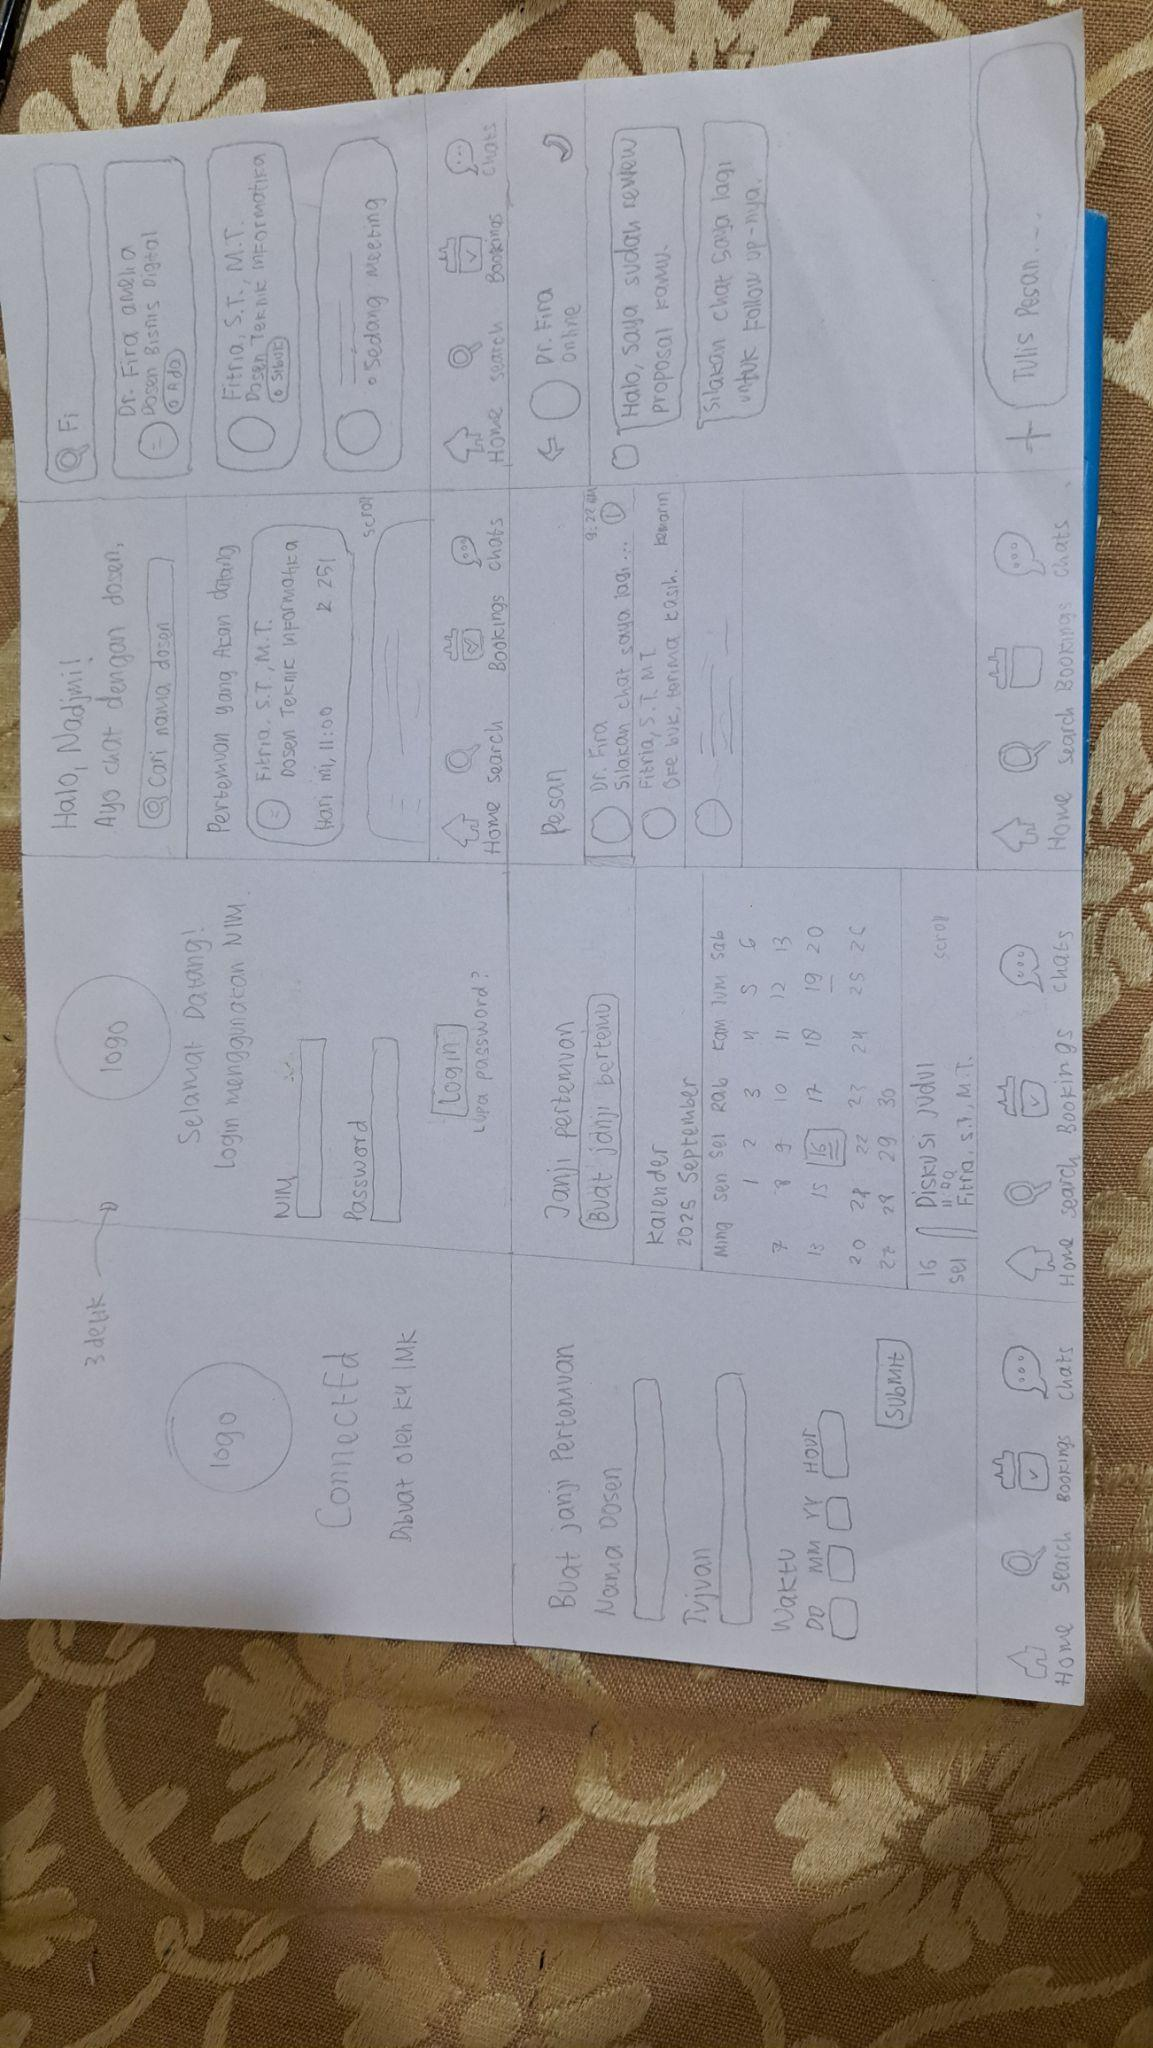 3 detik
logo
ConnectEd
Dibuat oleh K4 IMK
logo
Selamat Datang!
Login menggunakan NIM.
NIM
Password
Login
Lupa password?
Halo, Nadjmi!
Ayo chat dengan dosen,
Cari nama dosen
Pertemuan yang Akan datang
Fitria. S.T., M.T.
Dosen Teknik Informatika
Hari ini, 11:00
R 251
scroll
Home Search Bookings Chats
Fi
Dr. Fira amelia
Dosen Bisnis Digital
Ada
Fitria, S.T., M.T.
Dosen Teknik Informatika
Sibuk
Sedang Meeting
Home Search Bookings Chats
Buat janji Pertemuan
Nama Dosen
Tujuan
Waktu
DD MM YY HOUR
Submit
Home Search Bookings Chats
Janji pertemuan
Buat janji bertemu
Kalender
2025 September
Ming Sen Sel Rab Kam Jum Sab
1 2 3 4 5 6
7 8 9 10 11 12 13
13 15 16 17 18 19 20
20 21 22 23 24 25 26
27 28 29 30
16 Diskusi Judul
11:00
Sel Fitria, S.T, M.T.
scroll
Home Search Bookings Chats
Pesan
Dr. Fira
Silakan chat saya lagi... 1
Fitria, S.T. M.T
Oke buk, terima kasih. kemarin
Home Search Bookings Chats
Dr. Fira
Online
Halo, saya sudah review
proposal kamu.
Silakan chat saya lagi
untuk Follow up-nya.
+ Tulis Pesan....